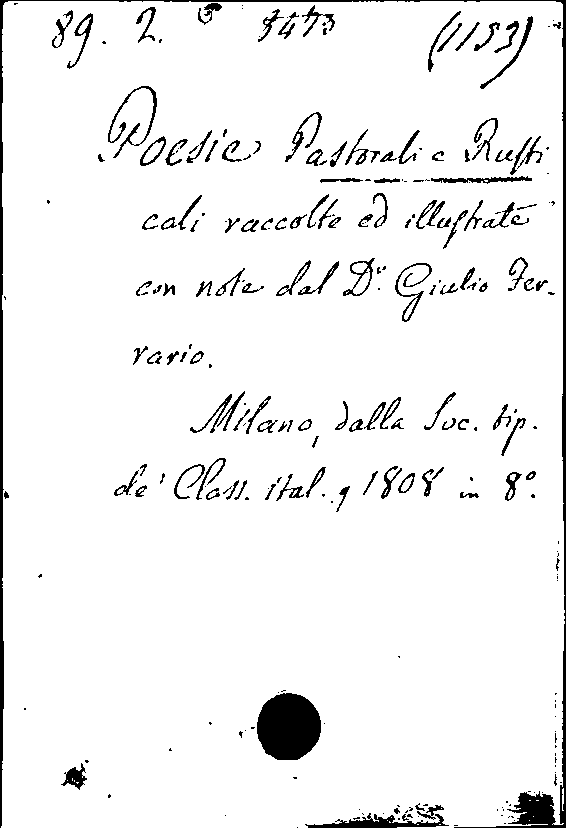 89. 2. 8473 (1153)
Poesie Pastorali e Rusti
cali raccolte ed illustrate
con note dal Dr. Giulio Fer-
rario.
Milano, dalla Soc. tip.
de' Class. ital., 1808 in 8°.